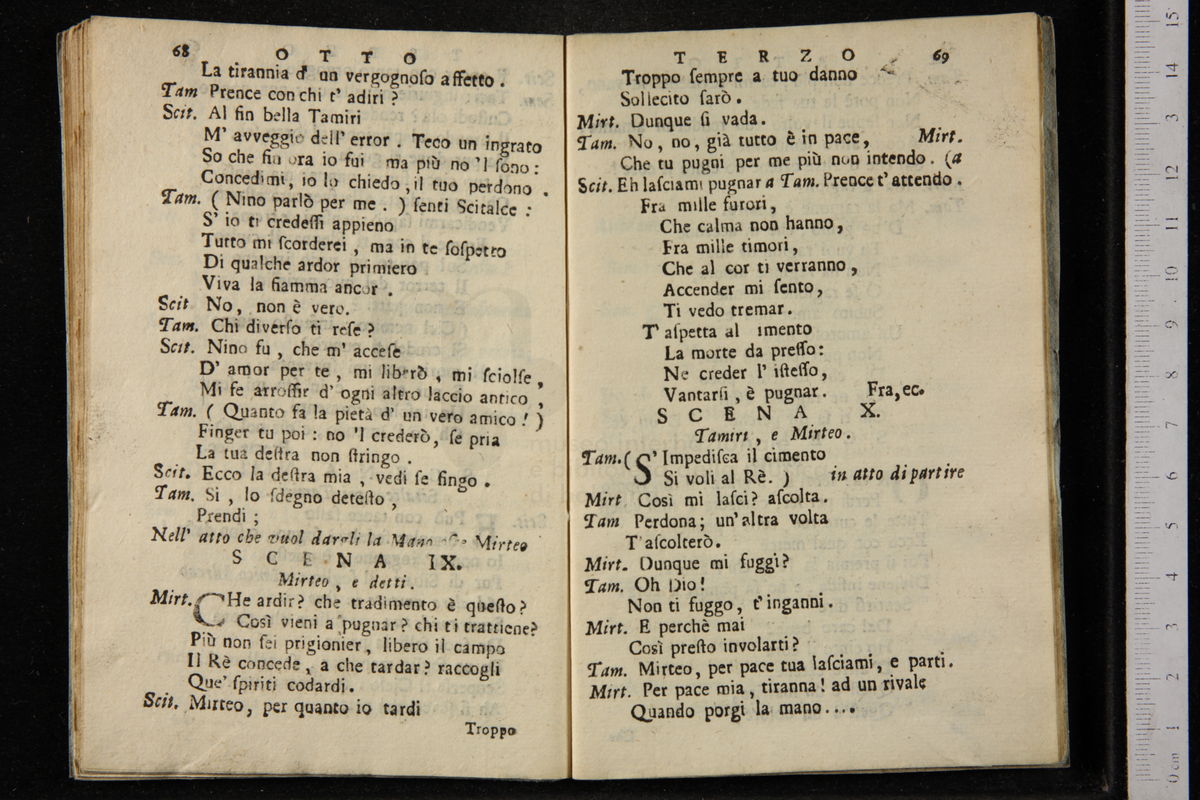 68 OTTO
La tirannia d' un vergognoſo affetto.
Tam Prence con chi t' adiri?
Scit. Al fin bella Tamiri
M' avveggio dell' error. Teco un ingrato
So che fin ora io fui ma più no 'l ſono:
Concedimi, io lo chiedo, il tuo perdono.
Tam. (Nino parlò per me.) ſenti Scitalce:
S' io ti credeſſi appieno
Tutto mi ſcorderei, ma in te ſoſpetto
Di qualche ardor primiero
Viva la fiamma ancor.
Scit No, non è vero.
Tam. Chi diverſo ti reſe?
Scit. Nino fu, che m' acceſe
D' amor per te, mi liberò, mi ſciolſe,
Mi fe arroſſir d' ogni altro laccio antico,
Tam. (Quanto fa la pietà d' un vero amico!)
Finger tu poi: no 'l crederò, ſe pria
La tua deſtra non ſtringo.
Scit. Ecco la deſtra mia, vedi ſe fingo.
Tam. Si, lo ſdegno deteſto,
Prendi;
Nell' atto che vuol dargli la Mano Mirteo
SCENA IX.
Mirteo, e detti.
Mirt. CHe ardir? che tradimento è queſto?
Così vieni a pugnar? chi ti trattiene?
Più non ſei prigionier, libero il campo
Il Rè concede, a che tardar? raccogli
Que' ſpiriti codardi.
Scit. Mirteo, per quanto io tardi
Troppo
TERZO 69
Troppo ſempre a tuo danno
Sollecito ſarò.
Mirt. Dunque ſi vada.
Tam. No, no, già tutto è in pace, Mirt.
Che tu pugni per me più non intendo. (a
Scit. Eh laſciami pugnar a Tam. Prence t' attendo.
Fra mille furori,
Che calma non hanno,
Fra mille timori,
Che al cor ti verranno,
Accender mi ſento,
Ti vedo tremar.
T' aſpetta al imento
La morte da preſſo:
Ne creder l' iſteſſo,
Vantarſi, è pugnar. Fra, ec.
SCENA X.
Tamiri, e Mirteo.
Tam. (S' Impediſca il cimento
Si voli al Rè.) in atto di partire
Mirt Così mi laſci? aſcolta.
Tam Perdona; un' altra volta
T' aſcolterò.
Mirt. Dunque mi fuggi?
Tam. Oh Dio!
Non ti fuggo, t' inganni.
Mirt. E perchè mai
Così preſto involarti?
Tam. Mirteo, per pace tua laſciami, e parti.
Mirt. Per pace mia, tiranna! ad un rivale
Quando porgi la mano....